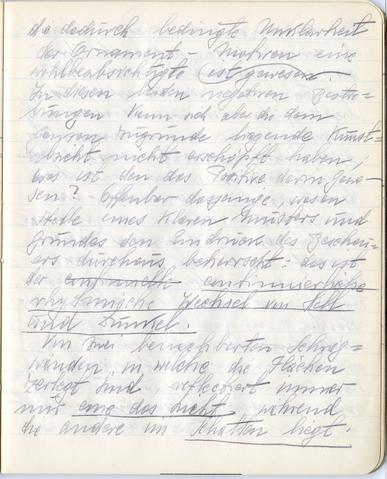 die dadurch bedingte Unklarheit
der Ornament-Motiven eine
wohlbeabsichtigte (ist gewesen.
In diesen beiden negativen Bestre-
bungen kann sich aber die dem
ganzen zugrunde liegende Kunst-
absicht nicht erschöpft haben,
was ist denn das Positive darin gewe-
sen? Offenbar dasjenige, wesen
stelle eines klaren Musters und
Grundes den Eindruck des Beschau-
ers durchaus beherrscht: das ist
der continuierliche
rhythmische Wechsel von Hell
und Dunkel.
Von zwei benachbarten Schräg-
wänden, in welche die Flächen
zerlegt sind, reflectiert immer
nur eine das Licht, während
die andere im Schatten liegt.